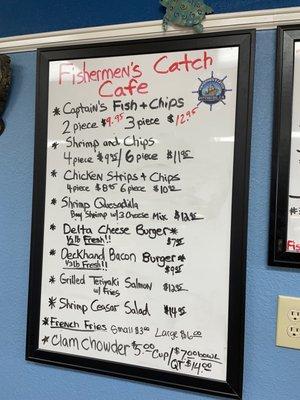 Fishermen's Catch
Cafe
* Captain's Fish + Chips
2 piece $9.95 3 piece $12.95
* Shrimp and Chips
4 piece $9.95 / 6 piece $11.95
* Chicken Strips + Chips
4 piece $8.95 6 piece $10.95
* Shrimp Quesadilla
Bay Shrimp w/3 Cheese Mix $12.95
* Delta Cheese Burger *
1/3 lb Fresh!! $7.95
* Deckhand Bacon Burger *
1/3 lb Fresh!! $9.95
* Grilled Teriyaki Salmon
w/ Fries $12.95
* Shrimp Ceasar Salad $14.95
* French Fries Small $3.00 Large $6.00
* Clam Chowder $5.00 Cup / $7.00 bowl
QT $14.00